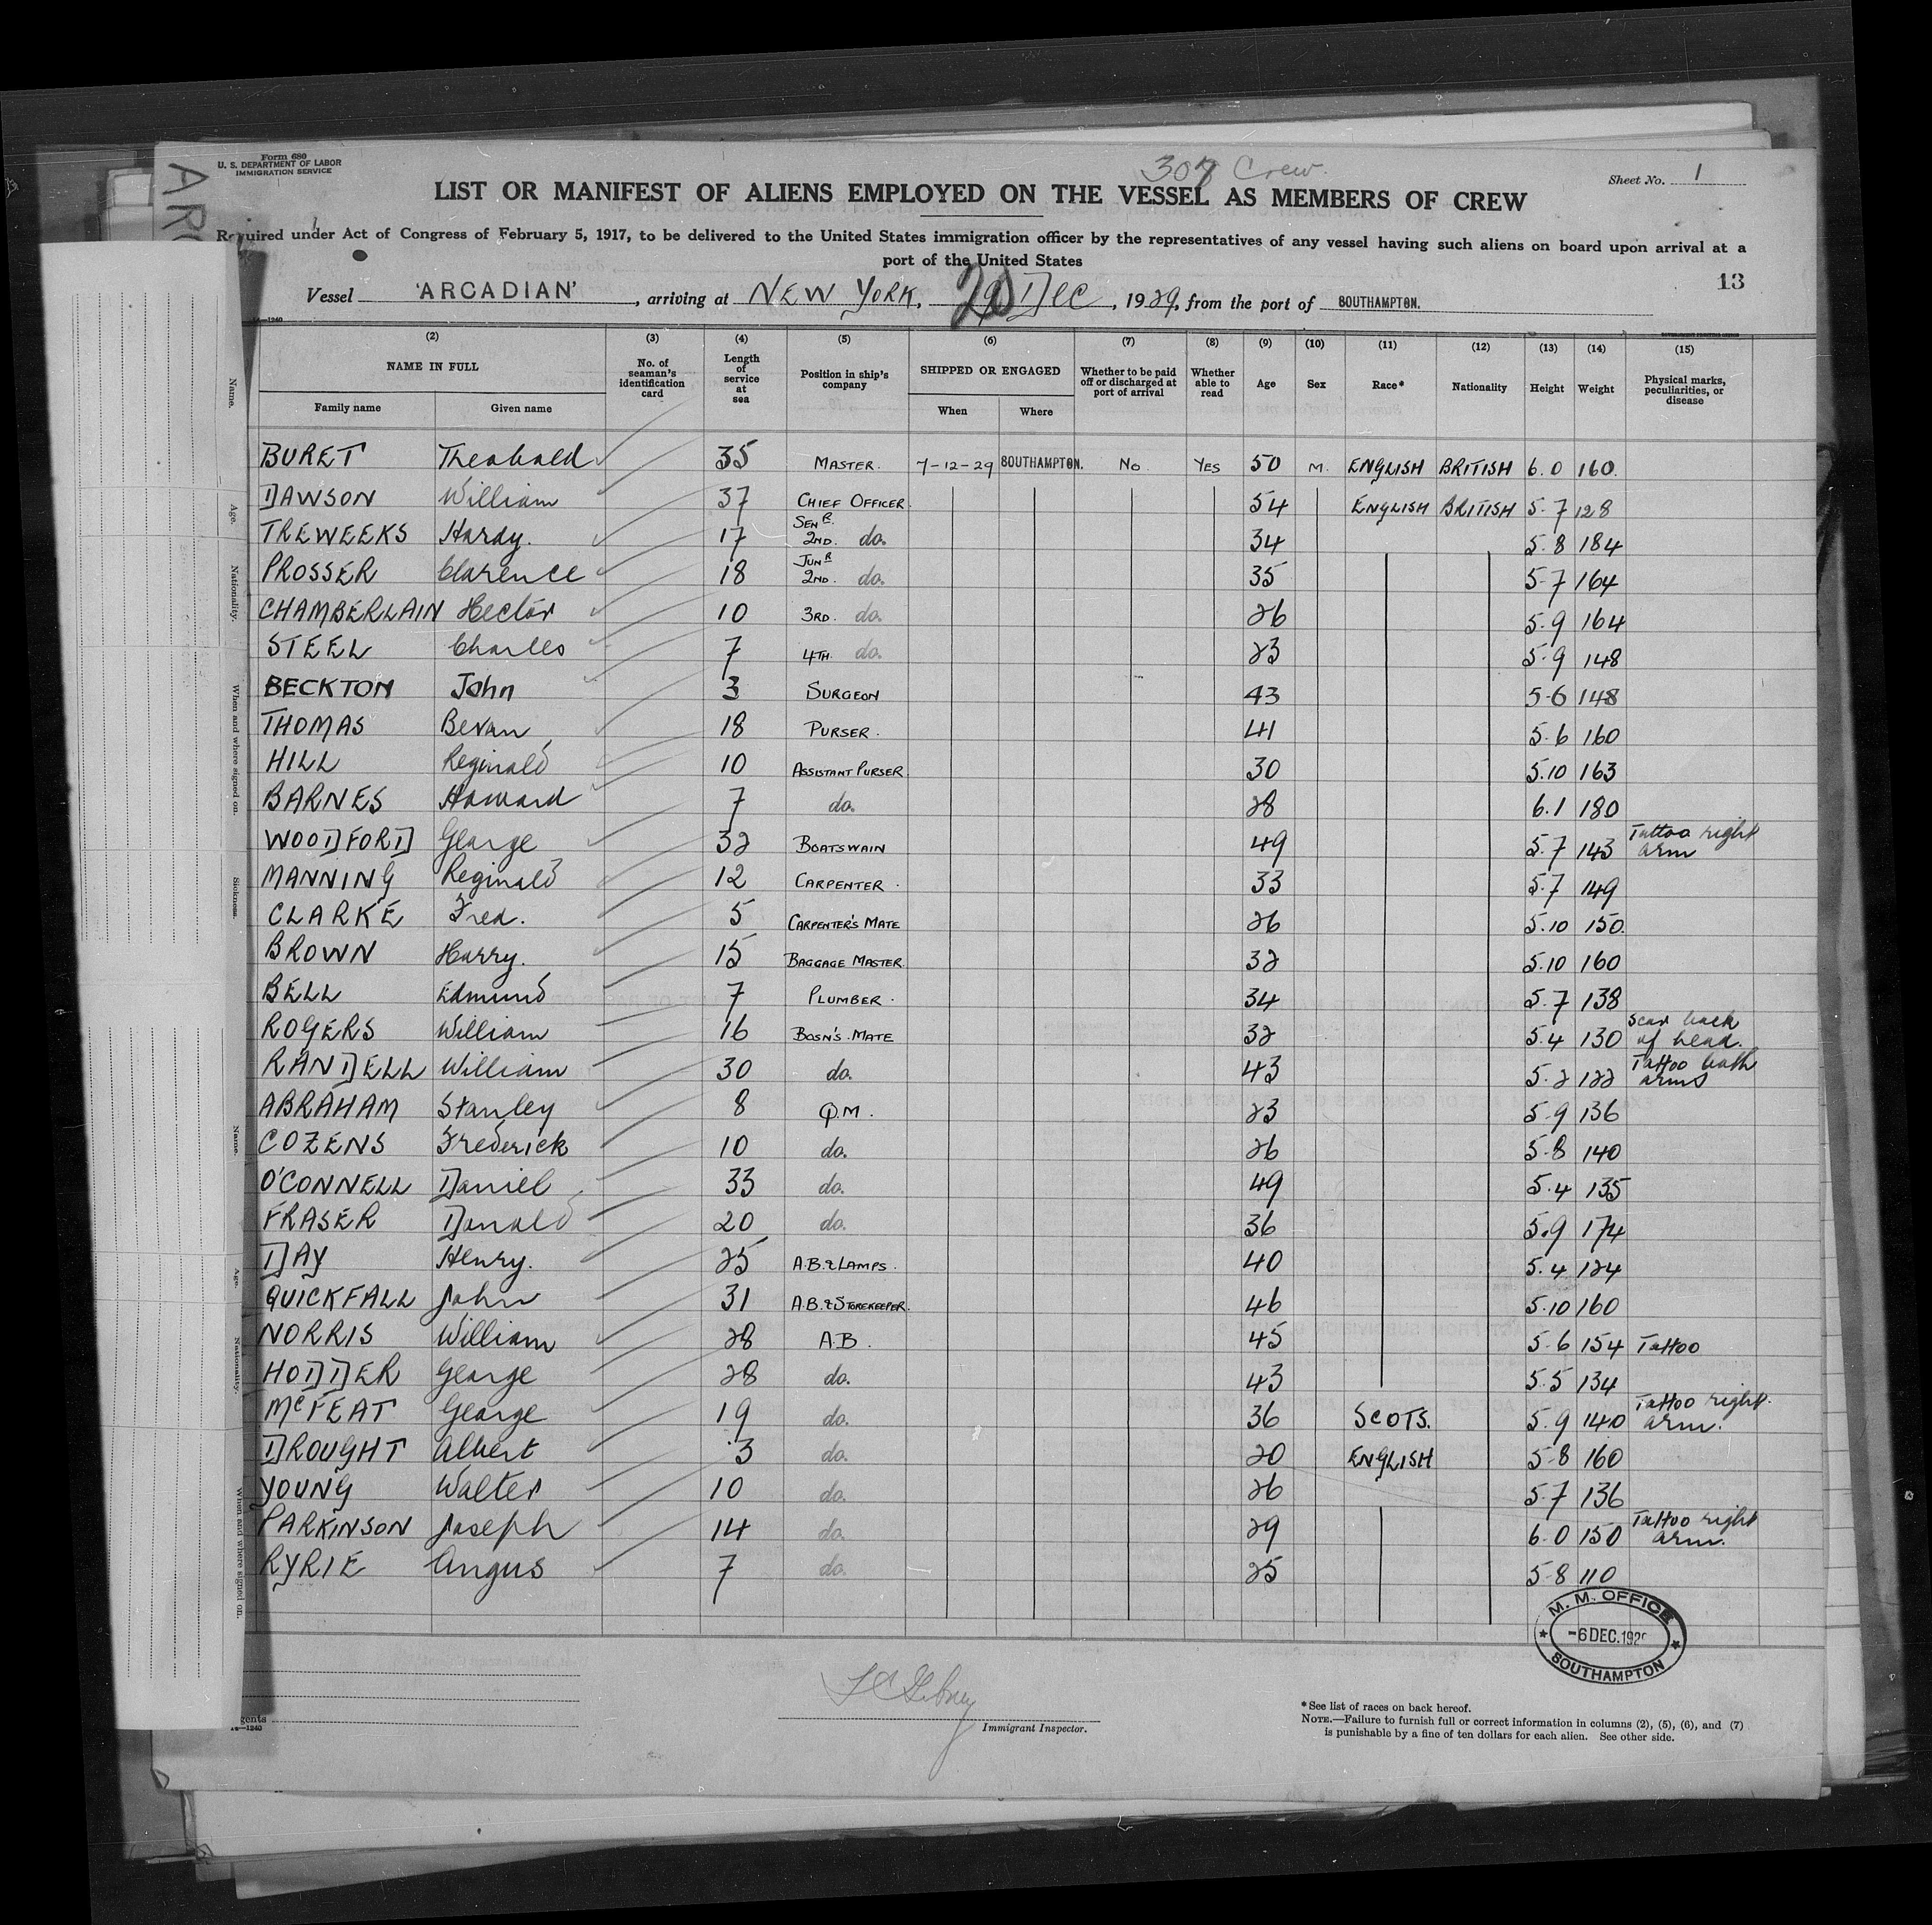 Form 680
U. S. DEPARTMENT OF LABOR
IMMIGRATION SERVICE
Crew.
Sheet No. 1
LIST OR MANIFEST OF ALIENS EMPLOYED ON THE VESSEL AS MEMBERS OF CREW
Required under Act of Congress of February 5, 1917, to be delivered to the United States immigration officer by the representatives of any vessel having such aliens on board upon arrival at a
port of the United States
13
Vessel 'ARCADIAN', arriving at NEW YORK, 20 Dec, 1929, from the port of SOUTHAMPTON.
14—1240
(2) (3) (4) (5) (6) (7) (8) (9) (10) (11) (12) (13) (14) (15)
NAME IN FULL No. of seaman's identification card Length of service at sea Position in ship's company SHIPPED OR ENGAGED Whether to be paid off or discharged at port of arrival Whether able to read Age Sex Race* Nationality Height Weight Physical marks, peculiarities, or disease
Family name Given name When Where
BURET Theobald 35 MASTER. 7-12-29 SOUTHAMPTON. No YES 50 M. ENGLISH BRITISH 6.0 160.
DAWSON William 37 CHIEF OFFICER. 54 ENGLISH BRITISH 5-7 128
TREWEEKS Hardy. 17 SENR. 2ND. do. 34 5.8 184
PROSSER Clarence 18 JUNR 2ND. do. 35 5-7 164
CHAMBERLAIN Hector 10 3RD. do. 26 5.9 164
STEEL Charles 7 4TH. do. 23 5-9 148
BECKTON John 3 SURGEON 43 5-6 148
THOMAS Bevan 18 PURSER. 41 5.6 160
HILL Reginald 10 ASSISTANT PURSER. 30 5.10 163
BARNES Howard 7 do. 28 6.1 180
WOODFORD George 32 BOATSWAIN 49 5.7 143 Tattoo right arm
MANNING Reginald 12 CARPENTER. 33 5.7 149
CLARKE Fred. 5 CARPENTER'S MATE 26 5.10 150.
BROWN Harry. 15 BAGGAGE MASTER. 32 5.10 160
BELL Edmund 7 PLUMBER. 34 5.7 138
ROGERS William 16 BOSN'S. MATE 32 5.4 130 Scar back of head.
RANDELL William 30 do. 43 5.2 122 Tattoo both arms
ABRAHAM Stanley 8 Q.M. 23 5.9 136
COZENS Frederick 10 do. 26 5.8 140
O'CONNELL Daniel 33 do. 49 5.4 135
FRASER Donald 20 do. 36 5.9 174
DAY Henry. 25 A.B. & LAMPS. 40 5.4 124
QUICKFALL John 31 A.B. & STOREKEEPER. 46 5.10 160
NORRIS William 28 A.B. 45 5.6 154 Tattoo
HODDER George 28 do. 43 5.5 134
McFEAT George 19 do. 36 SCOTS. 5.9 140 Tattoo right arm.
DROUGHT Albert 3 do. 20 ENGLISH 5-8 160
YOUNG Walter 10 do. 26 5.7 136
PARKINSON Joseph 14 do. 29 6.0 150 Tattoo right arm.
RYRIE Angus 7 do. 25 5-8 110
M. M. OFFICE
-6 DEC. 192
SOUTHAMPTON
Immigrant Inspector.
14—1240
*See list of races on back hereof.
NOTE.—Failure to furnish full or correct information in columns (2), (5), (6), and (7)
is punishable by a fine of ten dollars for each alien. See other side.
Name.
Age.
Nationality.
When and where signed on.
Sickness.
Name.
Age.
Nationality.
When and where signed on.